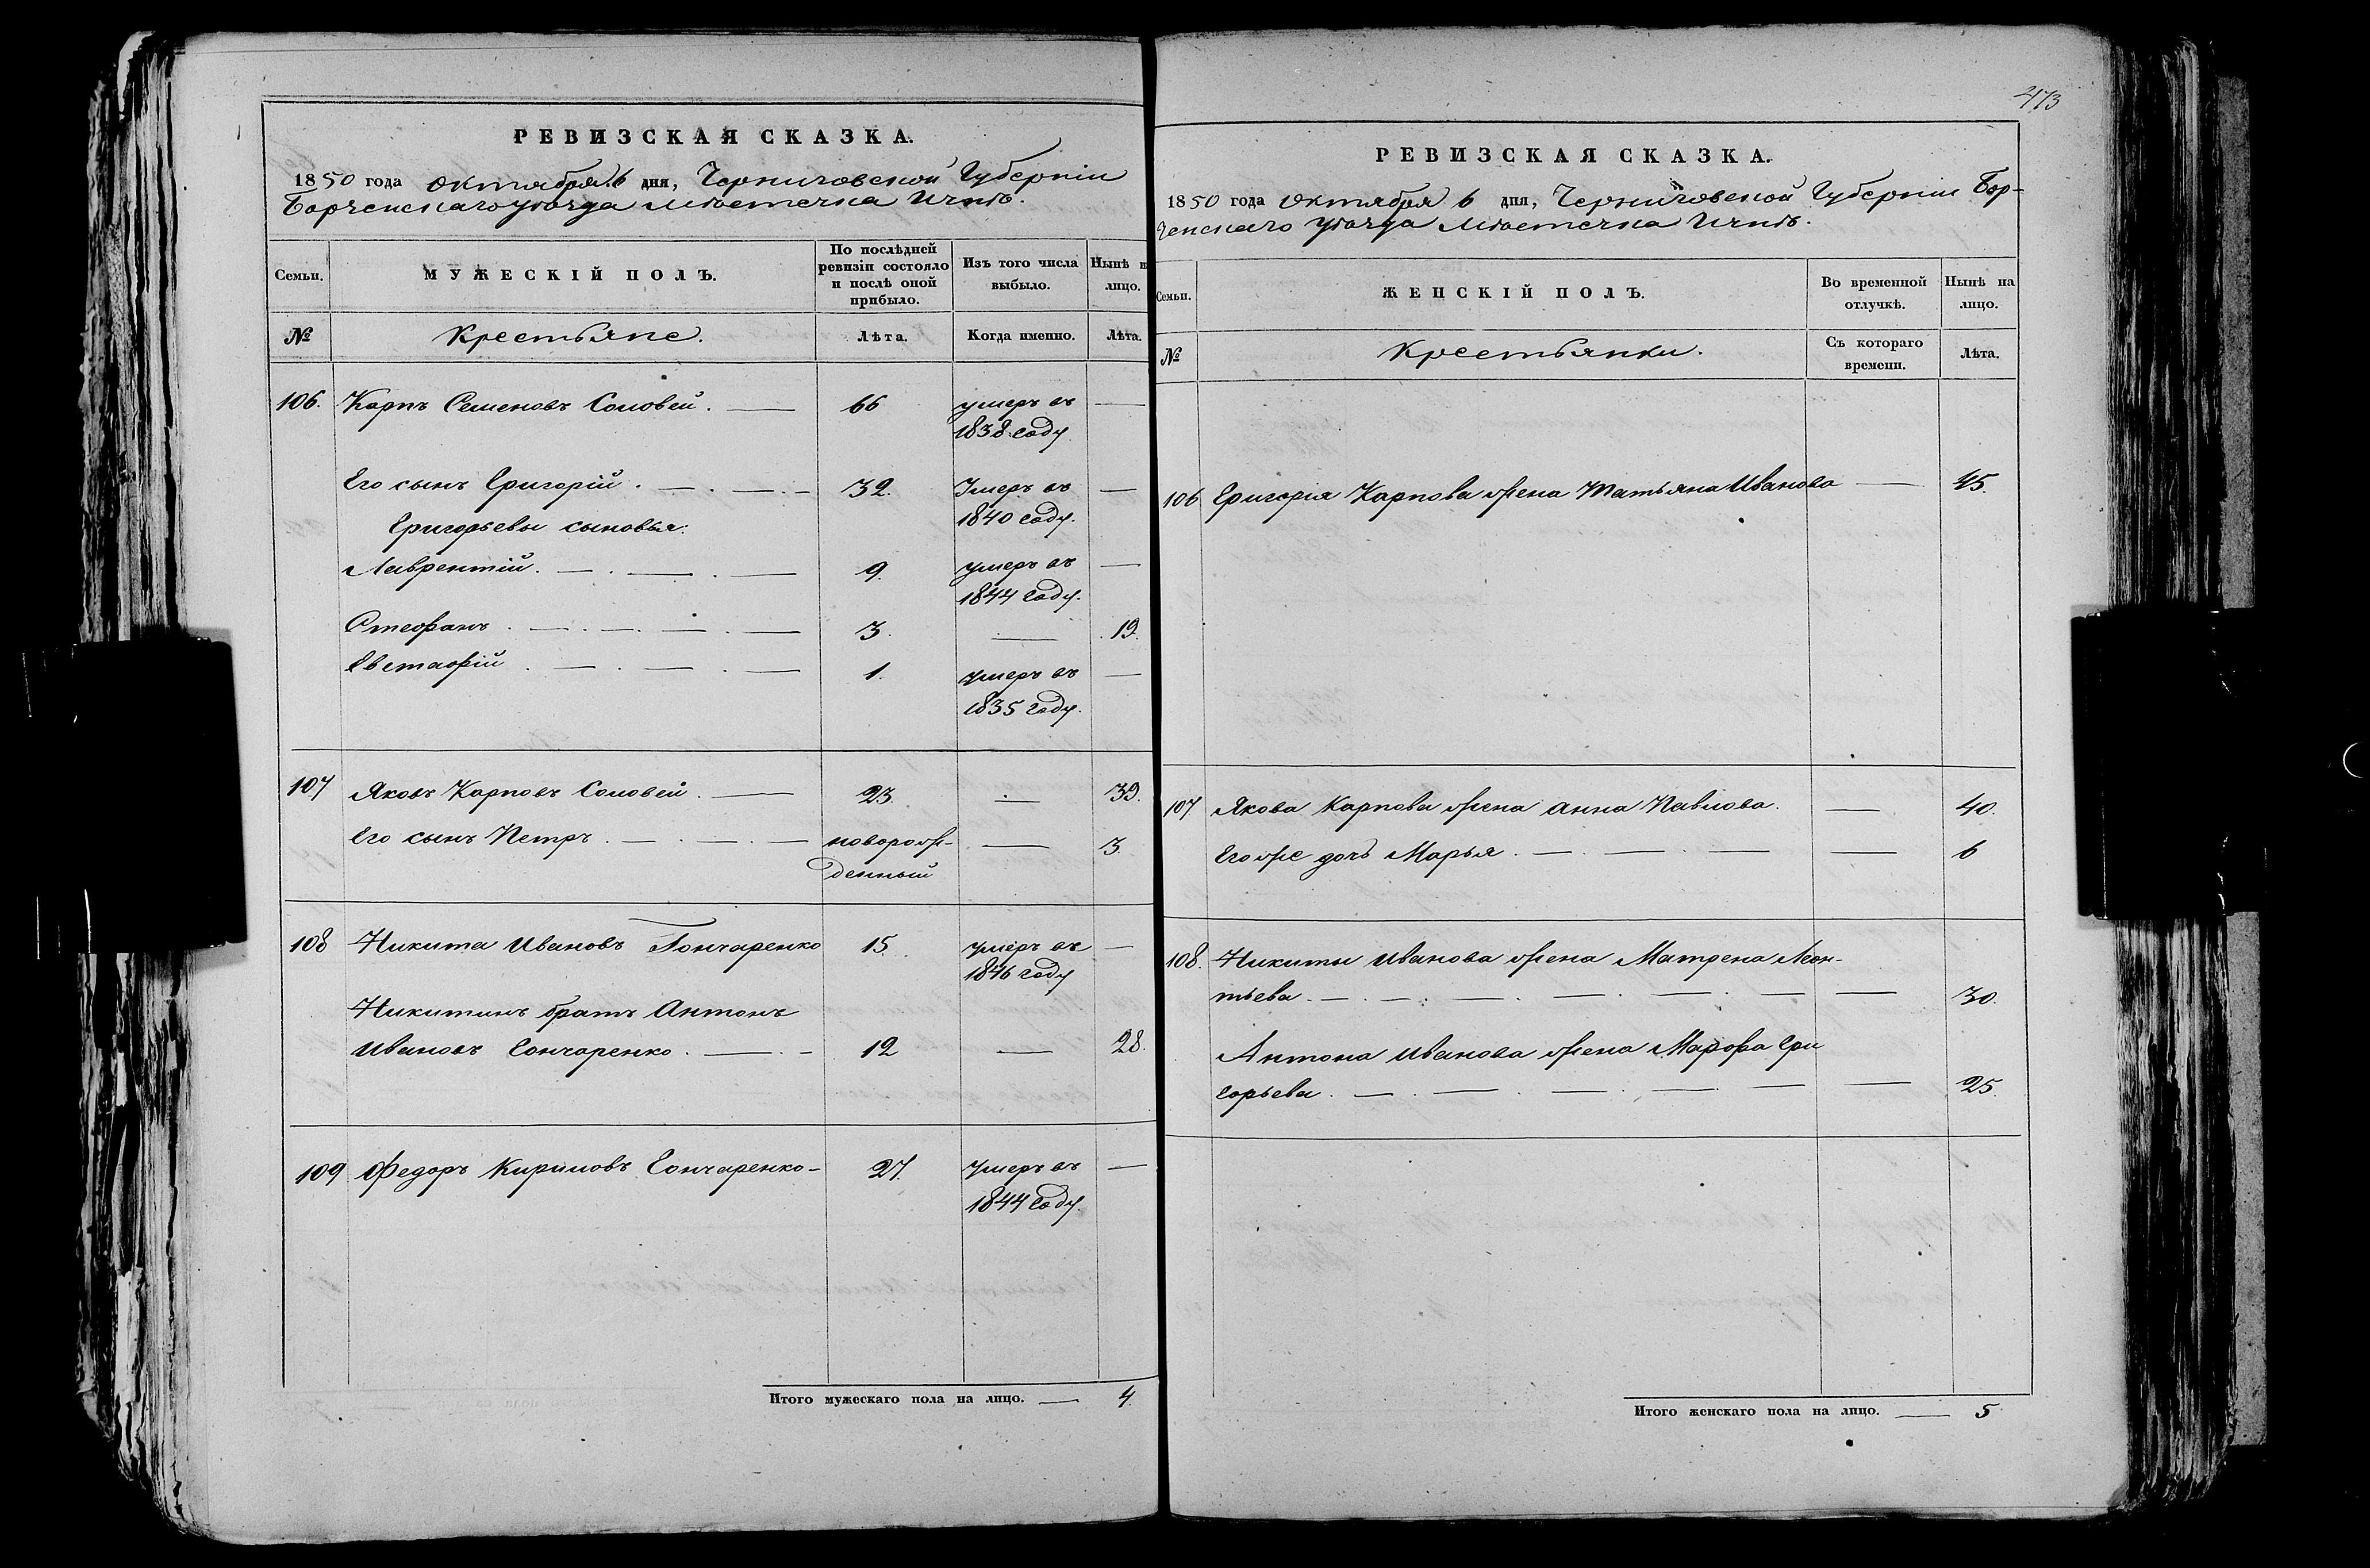 РЕВИЗСКАЯ СКАЗКА.
1850 года Октября 6 дня, Черниговской Губерніи
Борзенскаго уѣзда мѣстечка Ични.
Семьи. МУЖЕСКІЙ ПОЛЪ. По послѣдней ревизіи состояло и послѣ оной прибыло. Изъ того числа выбыло. Нынѣ н лицо.
№ Крестьяне. Лѣта. Когда именно. Лѣта.
106. Карпъ Семеновъ Соловей. — 66 умеръ въ —
1838 году
Его сынъ Григорій. — 32. Умеръ въ —
1840 году.
Григорьевы сыновья:
Лаврентій. — 9. умеръ въ —
1844 году.
Стефанъ. — 3. — 19.
Евстафій. — 1. умеръ въ —
1835 году.
107 Яковъ Карповъ Соловей. — 23. — 39.
Его сынъ Петръ. — новорож- — 3.
денный
108 Никита Ивановъ Гончаренко 15. умеръ въ —
1846 году
Никитинъ братъ Антонъ
Ивановъ Гончаренко. — 12 — 28.
109 Федоръ Кириловъ Гончаренко — 27. умеръ въ —
1844 году.
Итого мужескаго пола на лицо. — 4.
473
РЕВИЗСКАЯ СКАЗКА.
1850 года Октября 6 дня, Черниговской Губерніи Бор-
зенскаго уѣзда мѣстечка Ични.
Семьи. ЖЕНСКІЙ ПОЛЪ. Во временной отлучкѣ. Нынѣ на лицо.
№ Крестьянки. Съ котораго времени. Лѣта.
106 Григорія Карпова жена Татьяна Иванова — 45.
107. Якова Карпова жена Анна Павлова. — 40.
Его же дочь Марья. — 6
108. Никиты Иванова жена Матрена Леон-
тьева. — 30.
Антона Иванова жена Марфа Гри
горьева. — 25.
Итого женскаго пола на лицо. — 5